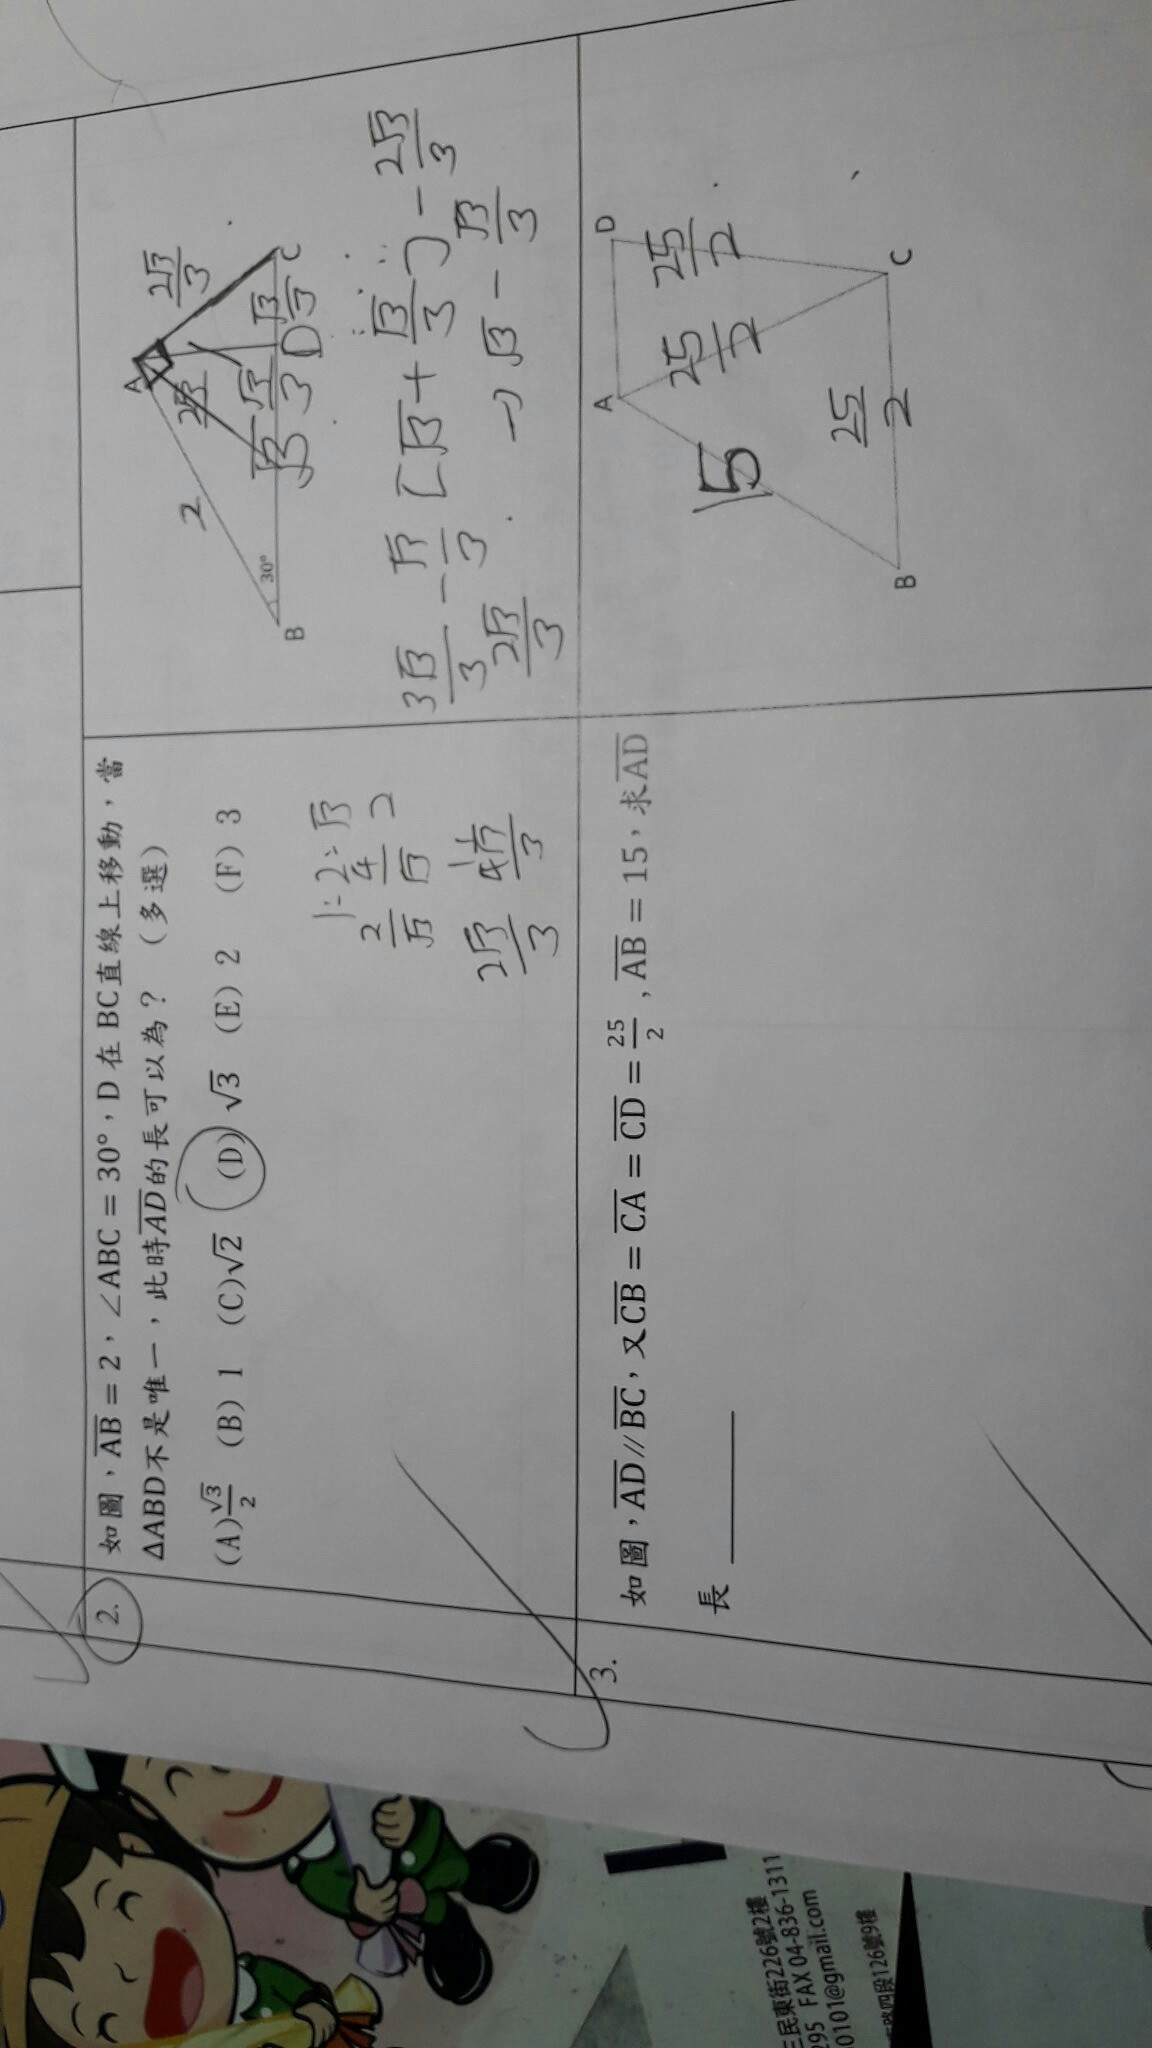 2.
如圖，AB = 2，∠ABC = 30°，D 在 BC直線上移動，當
ΔABD不是唯一，此時AD的長可以為？（多選）
(A)√3/2 (B) 1 (C)√2 (D) √3 (E) 2 (F) 3
1:2:√3
2/√3 4/√3 2
2√3/3 4√3/3
A
B
C
D
2
30°
2√3/3
2√3
√3
√3/3
√3/3
3√3/3 - √3/3 [√3 + √3/3 ) - 2√3/3
2√3/3 -) √3 - √3/3
3.
如圖，AD // BC，又CB = CA = CD = 25/2，AB = 15，求AD
長
A
D
B
C
15
25/2
25/2
25/2
三民東街226號2樓
295 FAX 04-836-1311
0101@gmail.com
路四段126號9樓